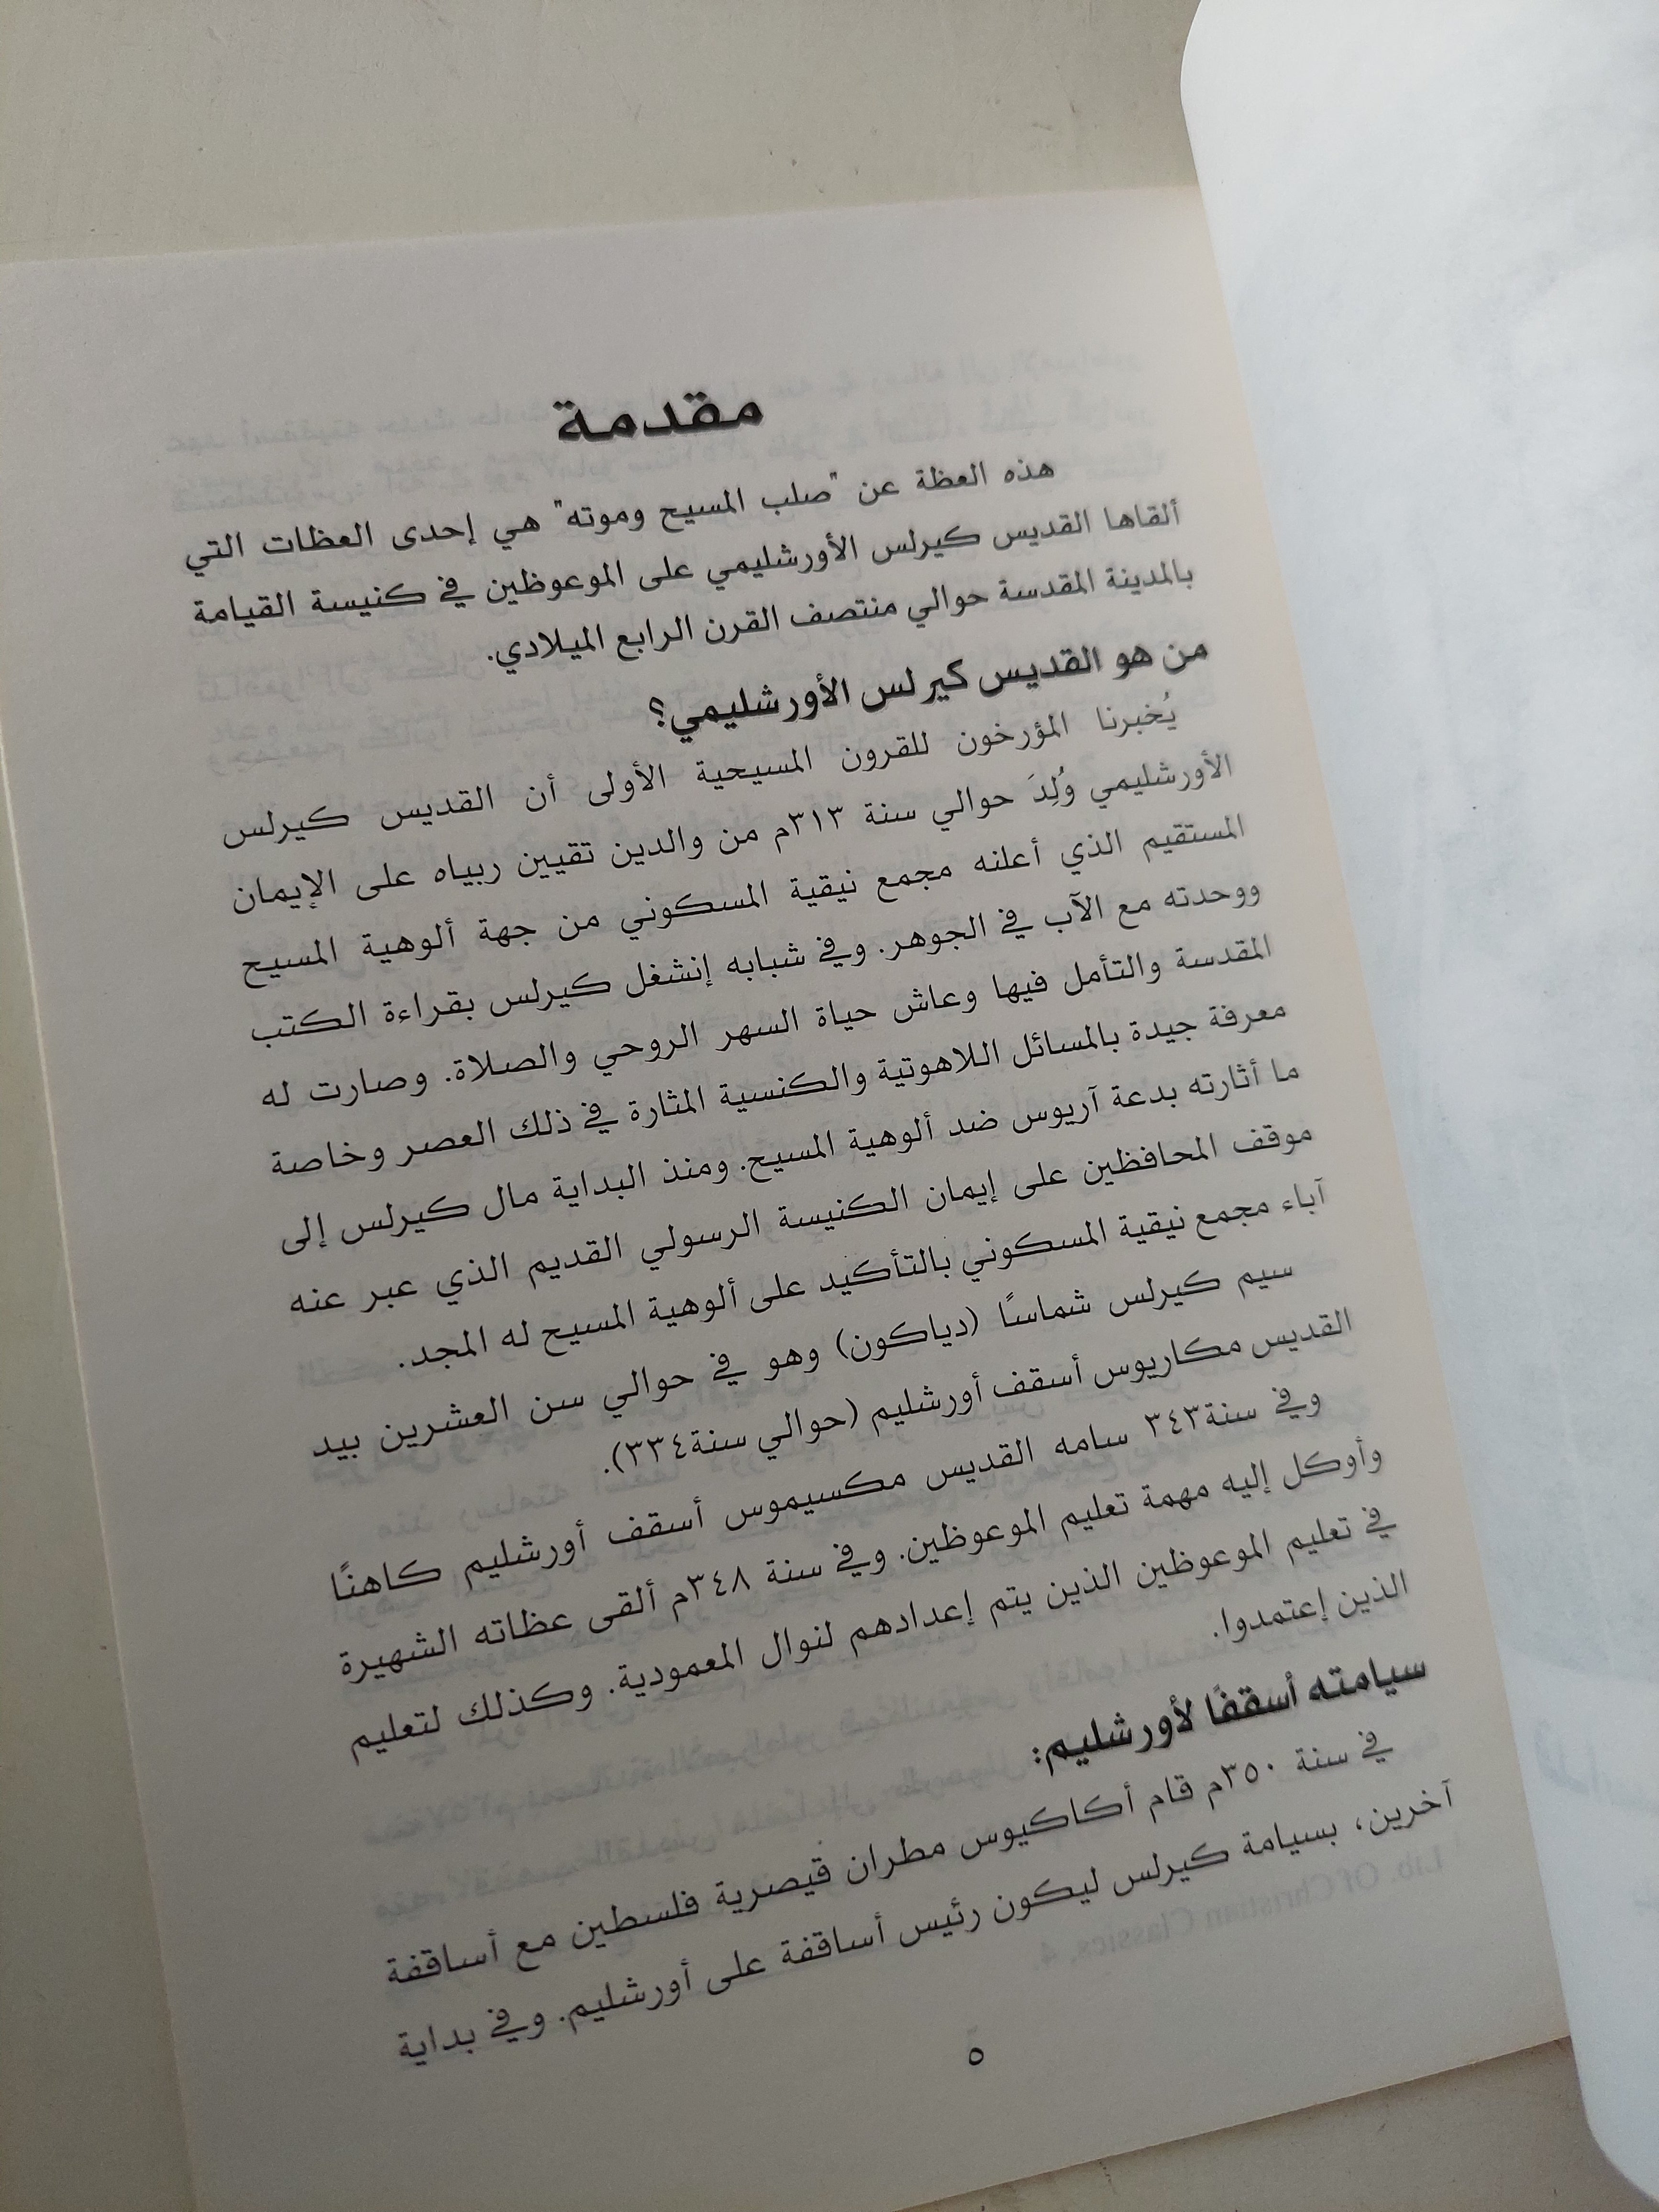 مقدمة
هذه العظة عن "صلب المسيح وموته" هي إحدى العظات التي
ألقاها القديس كيرلس الأورشليمي على الموعوظين في كنيسة القيامة
بالمدينة المقدسة حوالي منتصف القرن الرابع الميلادي.
من هو القديس كيرلس الأورشليمي؟
يُخبرنا المؤرخون للقرون المسيحية الأولى أن القديس كيرلس
الأورشليمي وُلِدَ حوالي سنة ٣١٣م من والدين تقيين ربياه على الإيمان
المستقيم الذي أعلنه مجمع نيقية المسكوني من جهة ألوهية المسيح
ووحدته مع الآب في الجوهر. وفي شبابه إنشغل كيرلس بقراءة الكتب
المقدسة والتأمل فيها وعاش حياة السهر الروحي والصلاة. وصارت له
معرفة جيدة بالمسائل اللاهوتية والكنسية المثارة في ذلك العصر وخاصة
ما أثارته بدعة آريوس ضد ألوهية المسيح. ومنذ البداية مال كيرلس إلى
موقف المحافظين على إيمان الكنيسة الرسولي القديم الذي عبر عنه
آباء مجمع نيقية المسكوني بالتأكيد على ألوهية المسيح له المجد.
سيم كيرلس شماسًا (دياكون) وهو في حوالي سن العشرين بيد
القديس مكاريوس أسقف أورشليم (حوالي سنة٣٣٤).
وفي سنة٣٤٣ سامه القديس مكسيموس أسقف أورشليم كاهنًا
وأوكل إليه مهمة تعليم الموعوظين. وفي سنة ٣٤٨م ألقى عظاته الشهيرة
في تعليم الموعوظين الذين يتم إعدادهم لنوال المعمودية. وكذلك لتعليم
الذين إعتمدوا.
سيامته أسقفًا لأورشليم:
في سنة ٣٥٠م قام أكاكيوس مطران قيصرية فلسطين مع أساقفة
آخرين، بسيامة كيرلس ليكون رئيس أساقفة على أورشليم. وفي بداية
٥